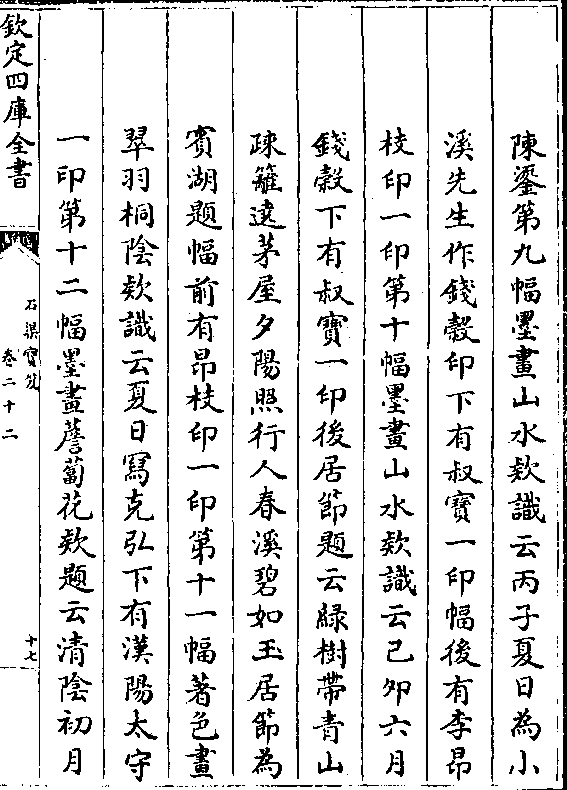 陳鎏第九幅墨畫山水欵識云丙子夏日為小
溪先生作錢榖印下有叔寶一印幅後有李昂
枝印一印第十幅墨畫山水欵識云己夘六月
錢榖下有叔寶一印後居節題云緑樹帶青山
疎籬遶茅屋夕陽照行人春溪碧如玉居節為
賓湖題幅前有昂枝印一印第十一幅著色畫
翠羽桐陰欵識云夏日寫克弘下有漢陽太守
一印第十二幅墨畫薝蔔花欵題云清陰初月
欽定四庫全書
石渠寳笈
卷二十二
十七